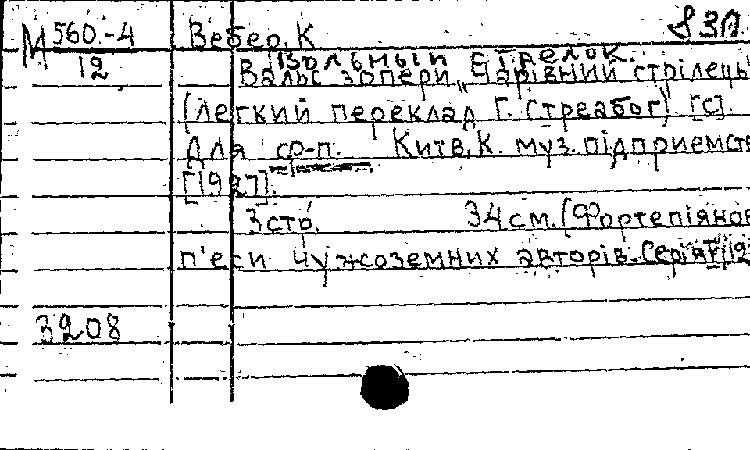 М 560.-4 Вебер, К
12
Вольный стрелок.
Вальс з опери „Чарівний стрілець"
(легкий переклад Г. Стреабог) [C].
Для ф-п. Київ, К. муз. підприємст
[1927].
3 стр. 34 см. (Фортепіянов
п'єси чужоземних авторів. Серія
3208